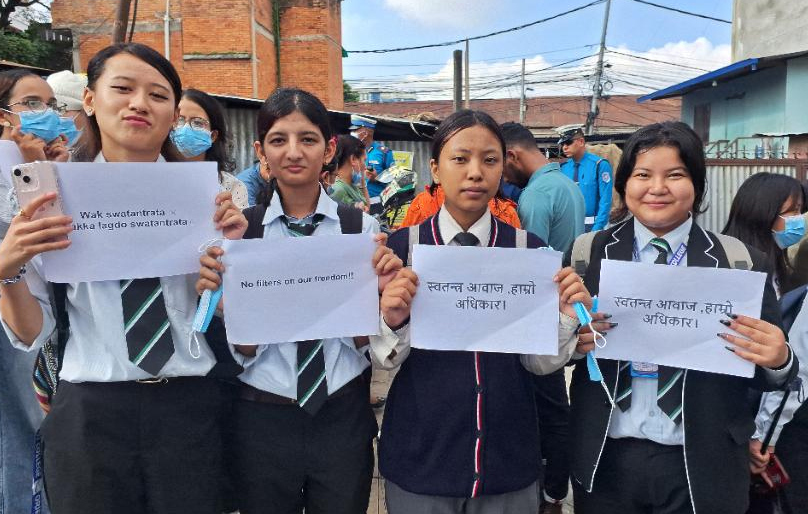 Wak swatantrata ×
akka lagdo swatantrata.
No filters on our freedom!!
स्वतन्त्र आवाज ,हाम्रो
अधिकार।
स्वतन्त्र आवाज ,हाम्रो
अधिकार।